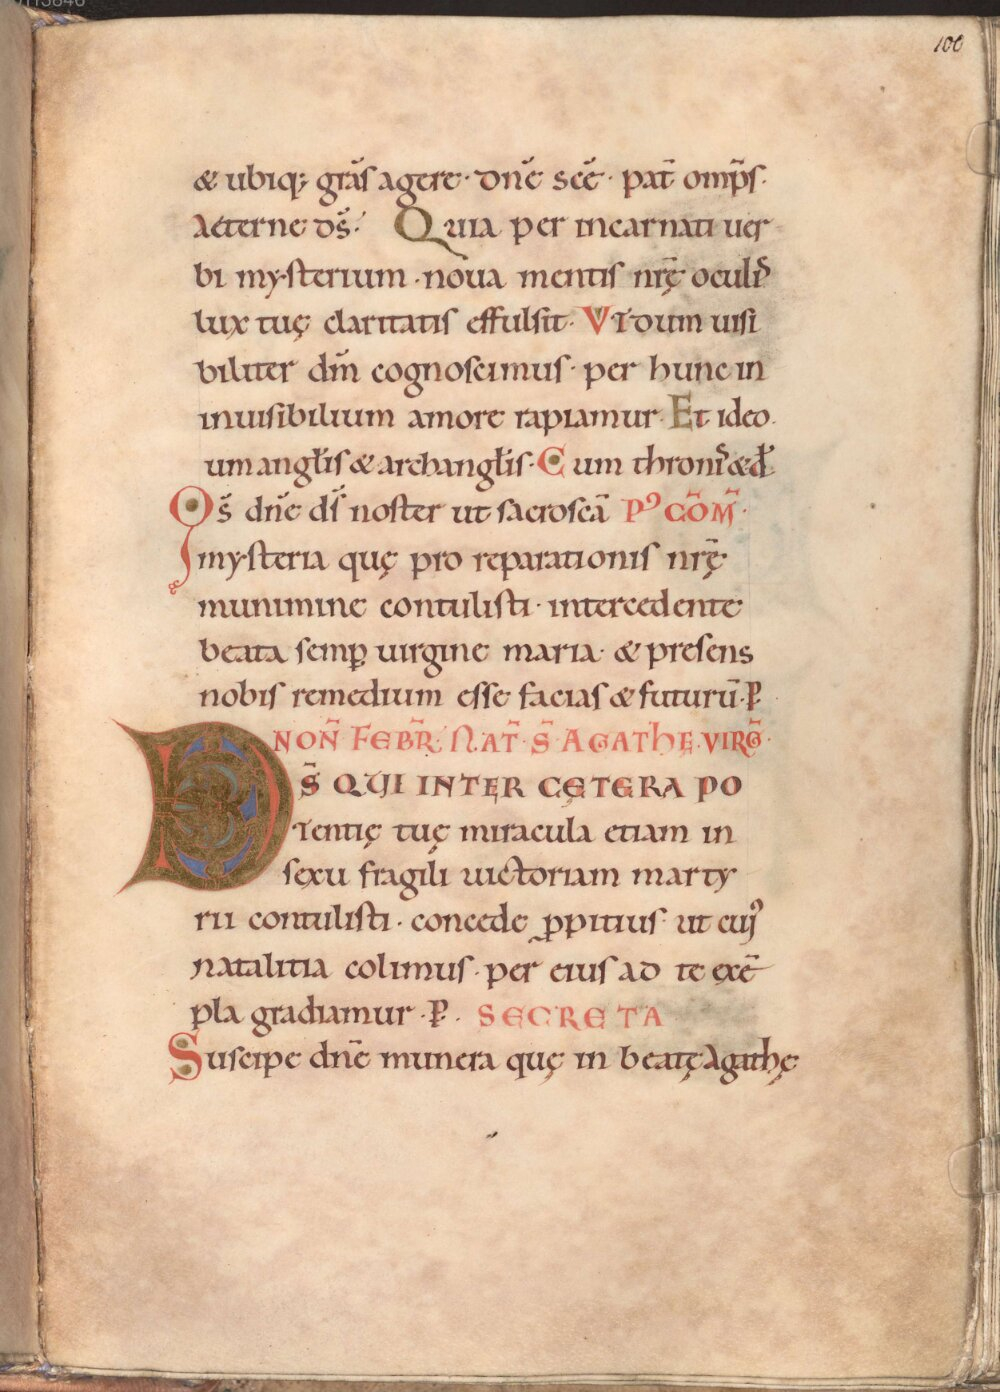 100
& ubiq; gras̄ agere· dn̄e sc̄e· pat̄ omp̄s·
aeterne ds̄· Quia per incarnati uer
bi mysterium· noua mentis nr̄ę oculis
lux tuę claritatis effulsit· Vt dum uisi
biliter dm̄ cognoscimus· per hunc in
inuisibilium amore rapiamur· Et ideo
um angłis & archangłis· Cum thronis & đ
Qs̄ dn̄e ds̄ noster ut sacroscā Pꝰ COM̄·
mysteria quę pro reparationis nr̄ę·
munimine contulisti· intercedente
beata semꝑ uirgine maria· & presens
nobis remedium esse facias & futurū· P̄
NON̄ FEBR̄ NAT̄ S̄ AGATHE VIRḠ·
Ds̄ QUI INTER CĘTERA PO
tentię tuę miracula etiam in
sexu fragili uictoriam marty
rii contulisti· concede ꝓpitius· ut cuiꝰ
natalitia colimus· per eius ad te exē
pla gradiamur· P̄· SECRETA
Suscipe dn̄e munera quę in beatę agathę